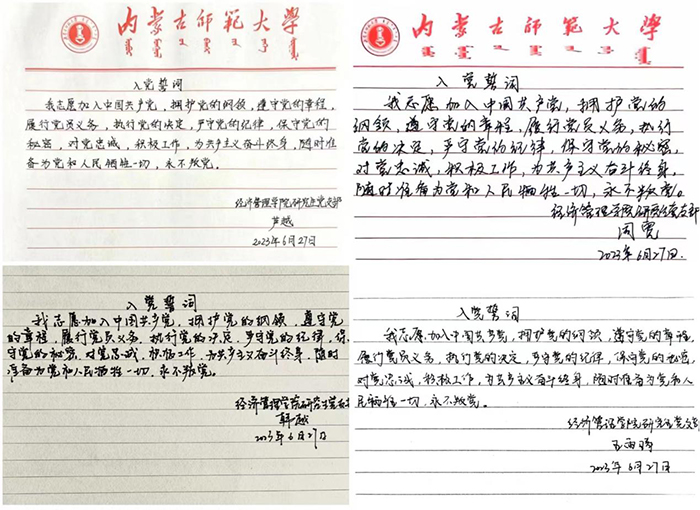 内蒙古师范大学
入党誓词
我志愿加入中国共产党，拥护党的纲领，遵守党的章程，
履行党员义务，执行党的决定，严守党的纪律，保守党的
秘密，对党忠诚，积极工作，为共产主义奋斗终身，随时准
备为党和人民牺牲一切，永不叛党。
经济管理学院研究生党支部
芦越
2023年6月27日
内蒙古师范大学
入党誓词
我志愿加入中国共产党，拥护党的
纲领，遵守党的章程，履行党员义务，执行
党的决定，严守党的纪律，保守党的秘密，
对党忠诚，积极工作，为共产主义奋斗终身，
随时准备为党和人民牺牲一切，永不叛党。
经济管理学院研究生党支部
周雯
2023年6月27日.
入党誓词
我志愿加入中国共产党，拥护党的纲领，遵守党
的章程，履行党员义务，执行党的决定，严守党的纪律，保
守党的秘密，对党忠诚，积极工作，为共产主义奋斗终身，随时
准备为党和人民牺牲一切，永不叛党。
经济管理学院研究生党支
韩越
2023年6月27日
入党誓词
我志愿加入中国共产党，拥护党的纲领，遵守党的章程，
履行党员义务，执行党的决定，严守党的纪律，保守党的秘密，
对党忠诚，积极工作，为共产主义奋斗终身，随时准备为党和人
民牺牲一切，永不叛党。
经济管理学院研究生党支部
王雨
2023年6月27日